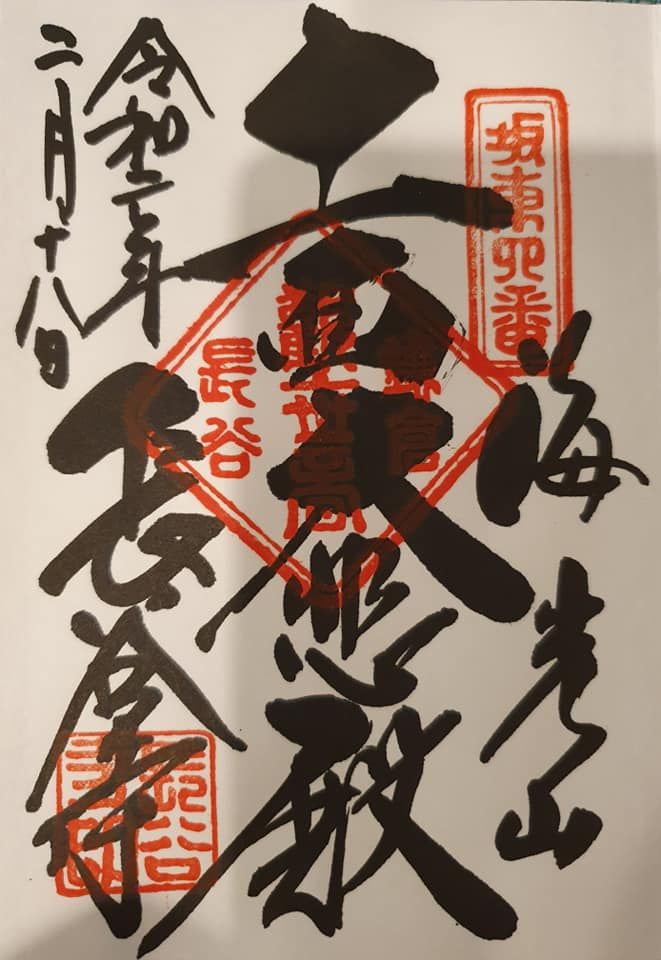 坂東四番
海光山
十一面大悲殿
鎌倉
長谷
長谷寺
長谷
寺印
令和二年
二月十八日